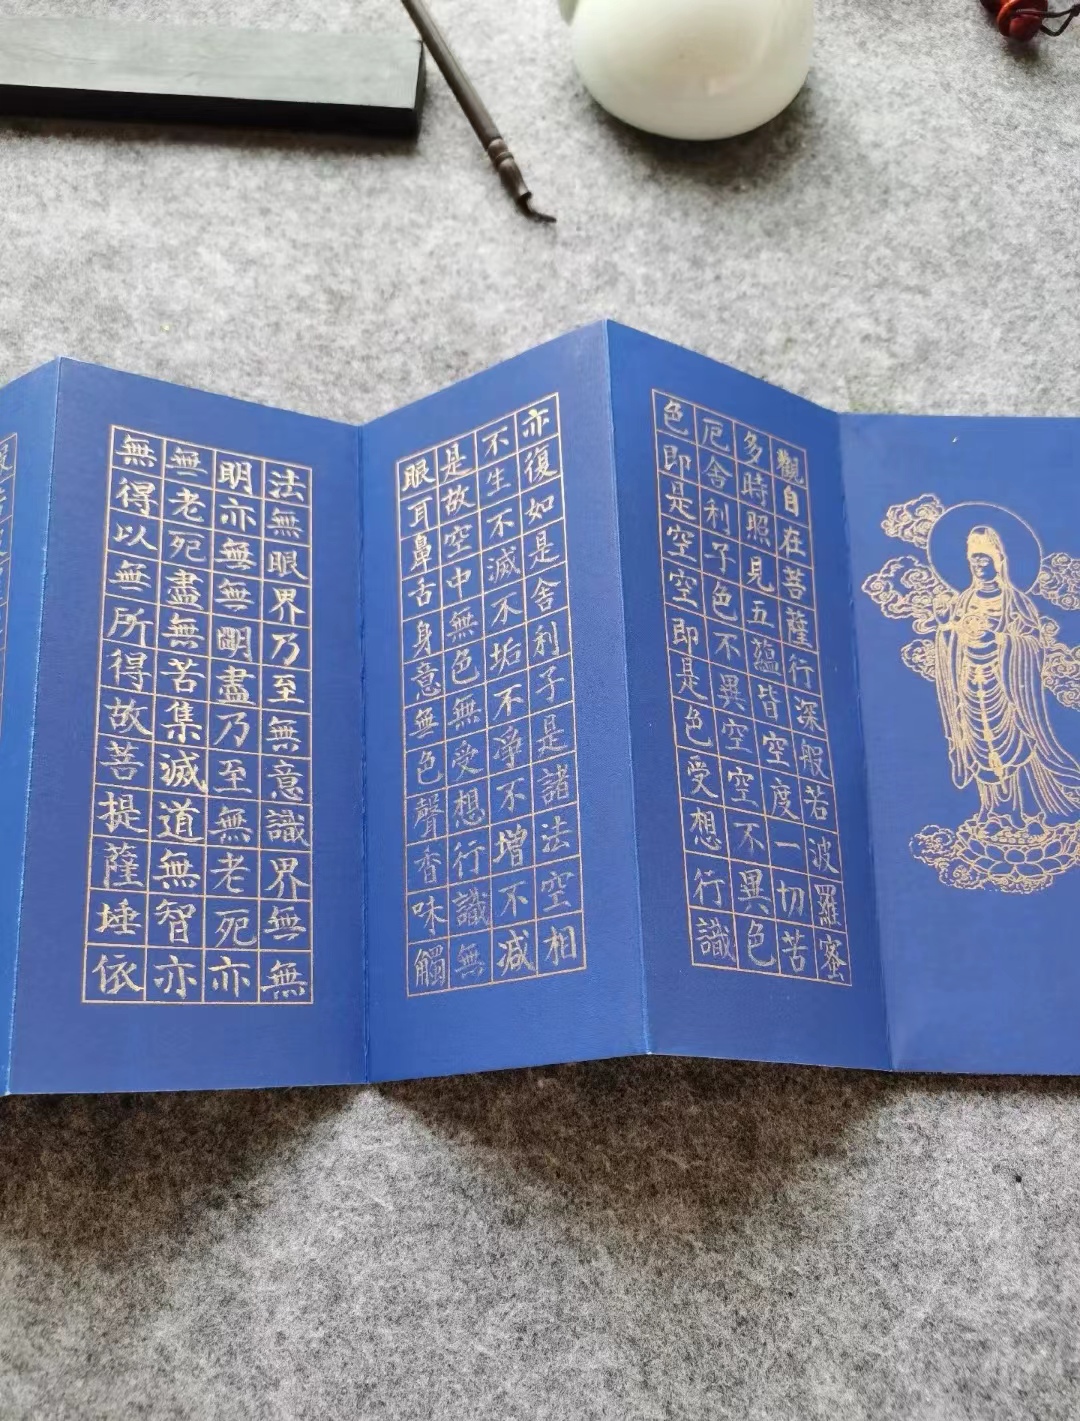 觀自在菩薩行深般若波羅蜜
多時照見五蘊皆空度一切苦
厄舍利子色不異空空不異色
色即是空空即是色受想行識
亦復如是舍利子是諸法空相
不生不滅不垢不淨不增不減
是故空中無色無受想行識無
眼耳鼻舌身意無色聲香味觸
法無眼界乃至無意識界無無
明亦無無明盡乃至無老死亦
無老死盡無苦集滅道無智亦
無得以無所得故菩提薩埵依